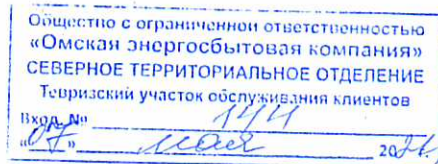 Общество с ограниченной ответственностью
«Омская энергосбытовая компания»
СЕВЕРНОЕ ТЕРРИТОРИАЛЬНОЕ ОТДЕЛЕНИЕ
Тевризский участок обслуживания клиентов
Вход. № 144
«07» мая 20